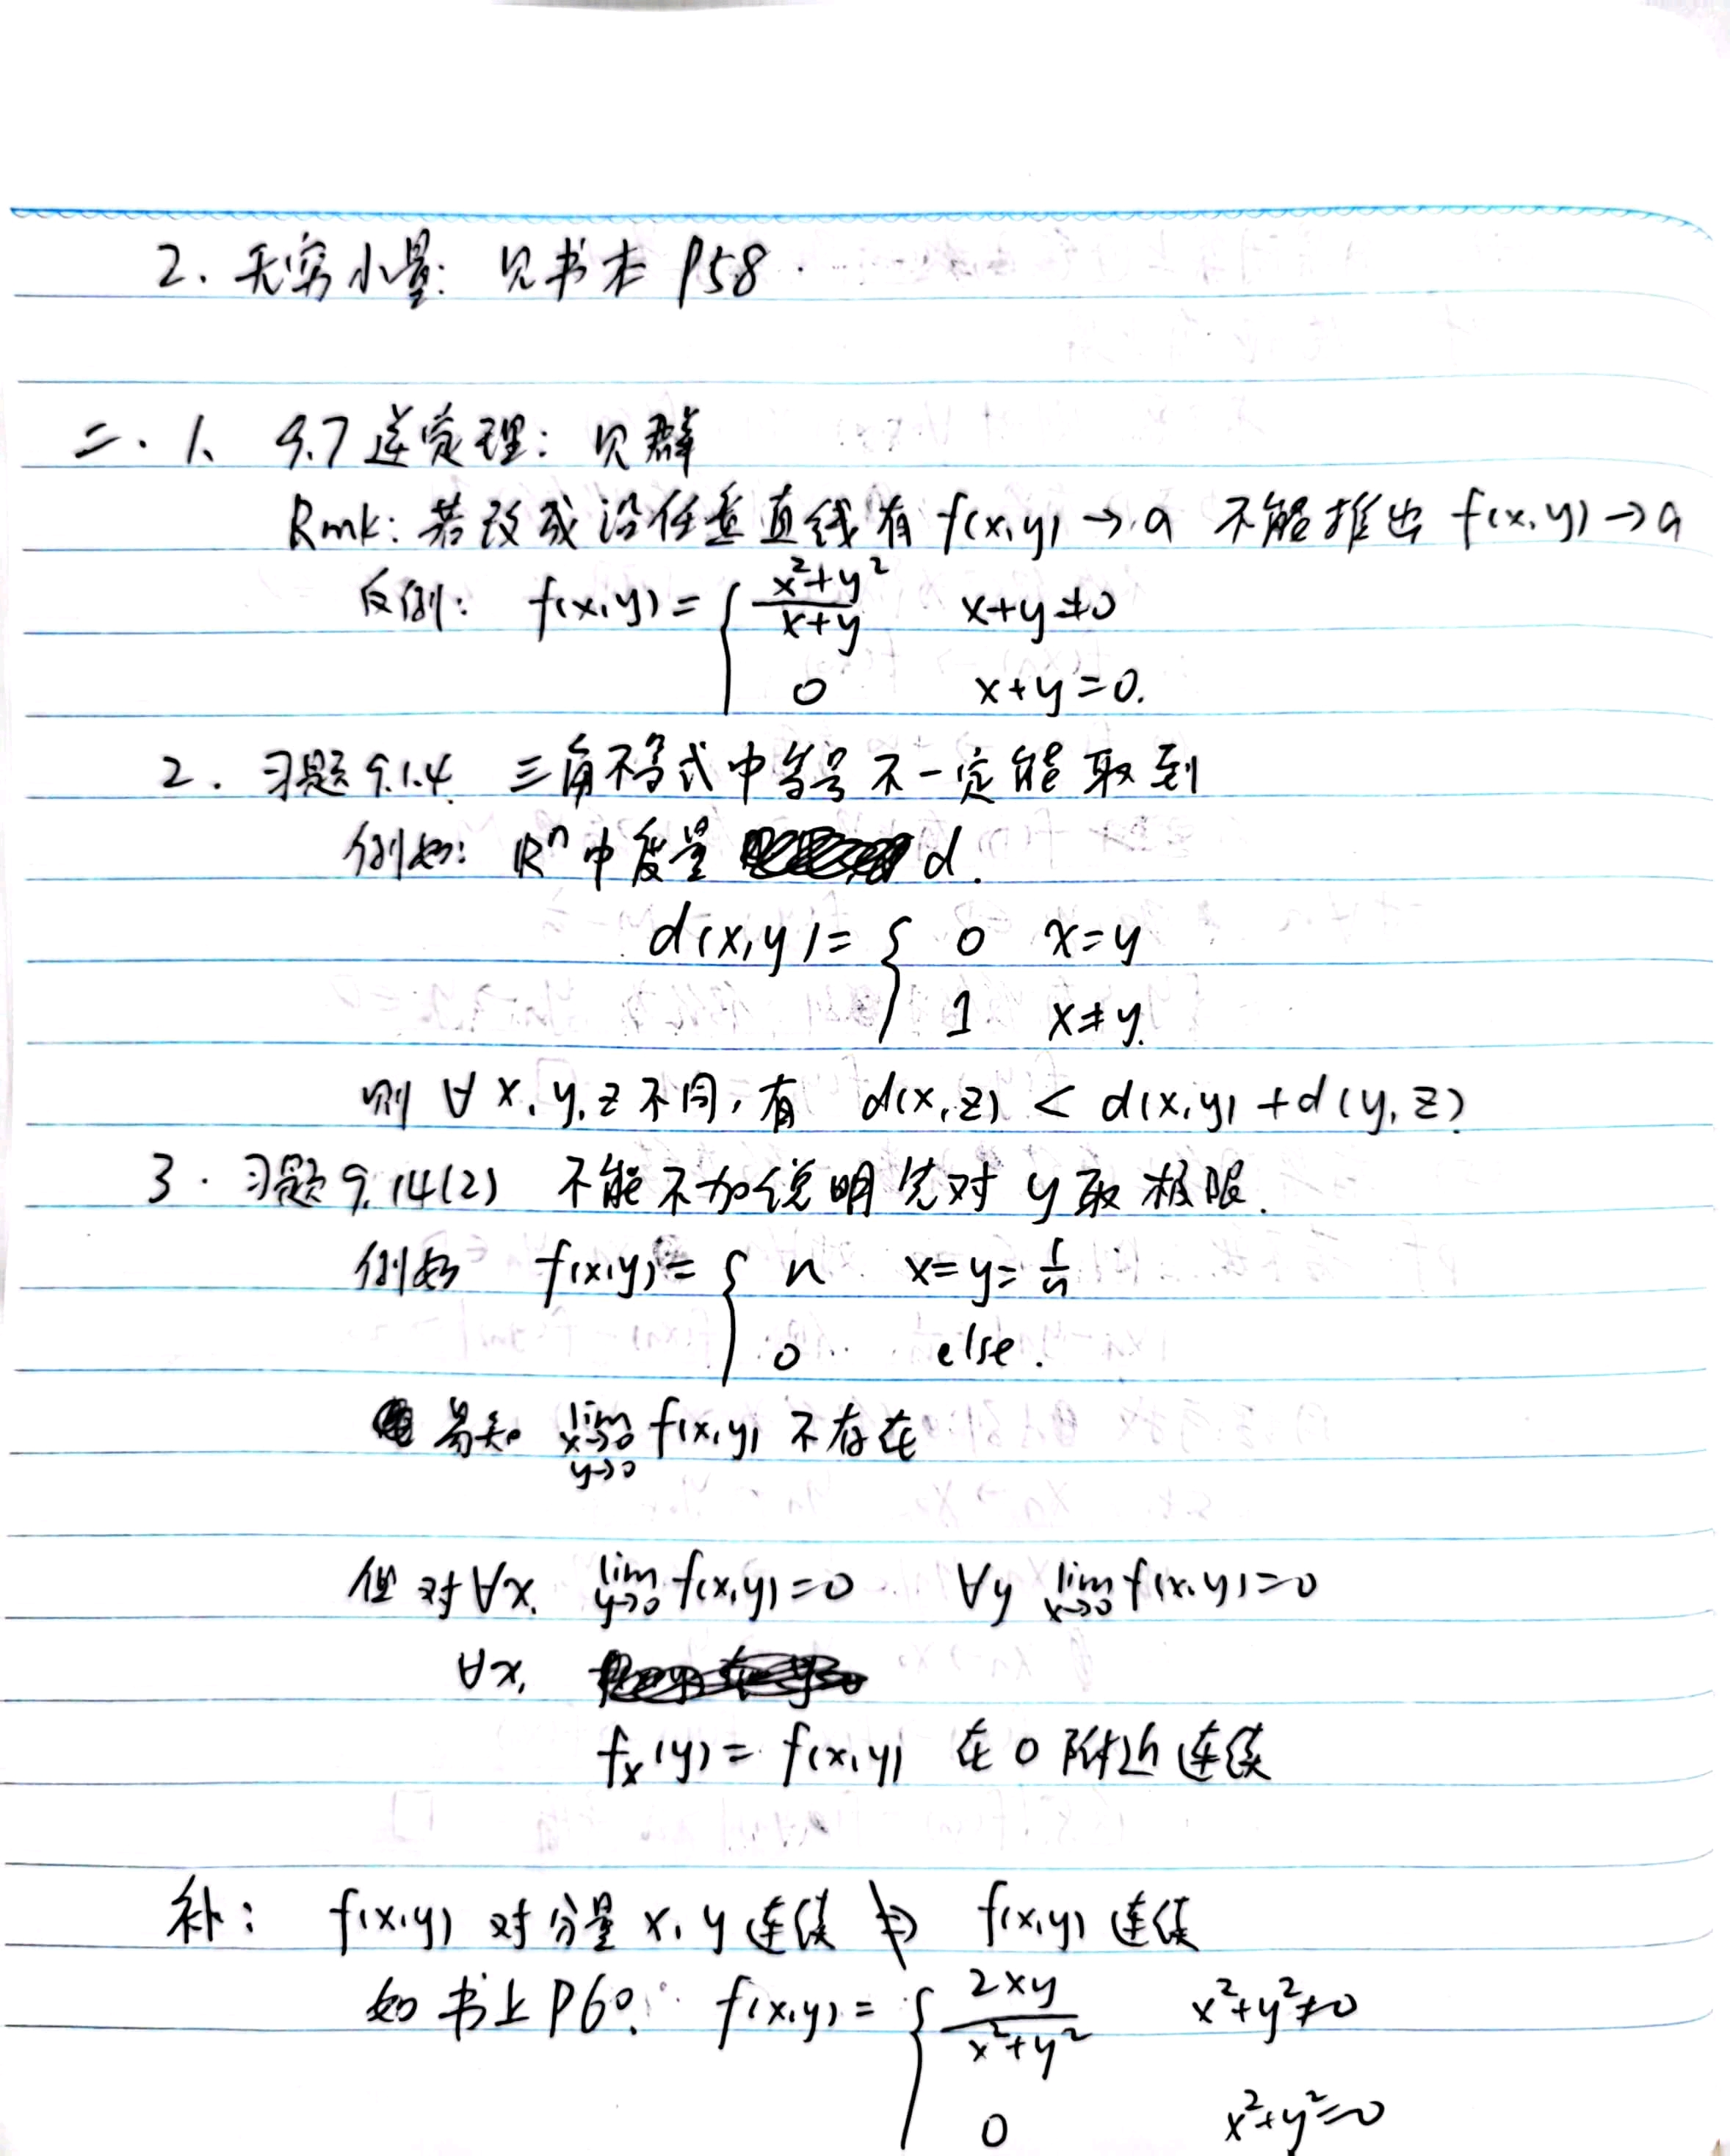 2. 无穷小量: 见书本 P58.
二. 1、 9.7 逆定理: 见群
Rmk: 若改成沿任意直线有 f(x,y) → a 不能推出 f(x,y) → a
反例: f(x,y) = { (x²+y²)/(x+y) x+y≠0
0 x+y=0.
2. 习题9.1.4. 三角不等式中等号不一定能取到
例如: ℝⁿ中度量 d.
d(x,y) = { 0 x=y
1 x≠y.
则 ∀ x, y, z 不同, 有 d(x,z) < d(x,y) + d(y,z).
3. 习题9.14(2) 不能不加说明先对 y 取极限.
例如 f(x,y) = { n x=y=1/n
0 else.
易知 lim x→0 y→0 f(x,y) 不存在
但对∀x. lim y→0 f(x,y)=0 ∀y lim x→0 f(x,y)=0
∀x,
fₓ(y) = f(x,y) 在 0 附近连续
补: f(x,y) 对分量 x, y 连续 ⇏ f(x,y) 连续
如书上 P60. f(x,y) = { 2xy/(x²+y²) x²+y²≠0
0 x²+y²=0